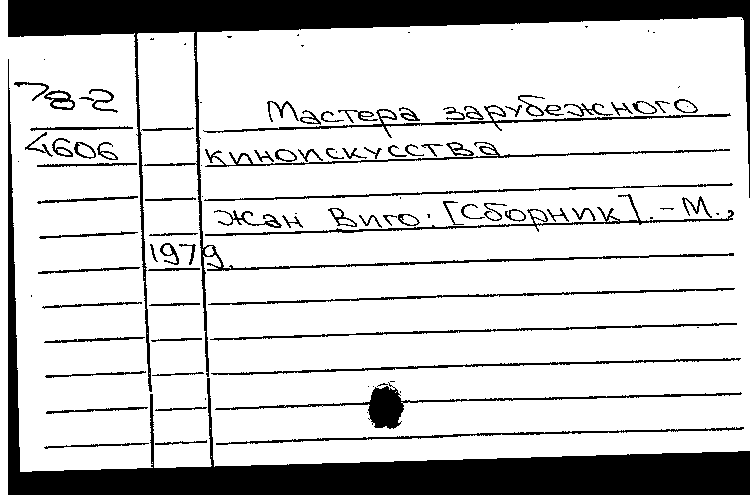 78-2
Мастера зарубежного
4606
киноискусства
Жан Виго: [Сборник]. - М.,
1979.